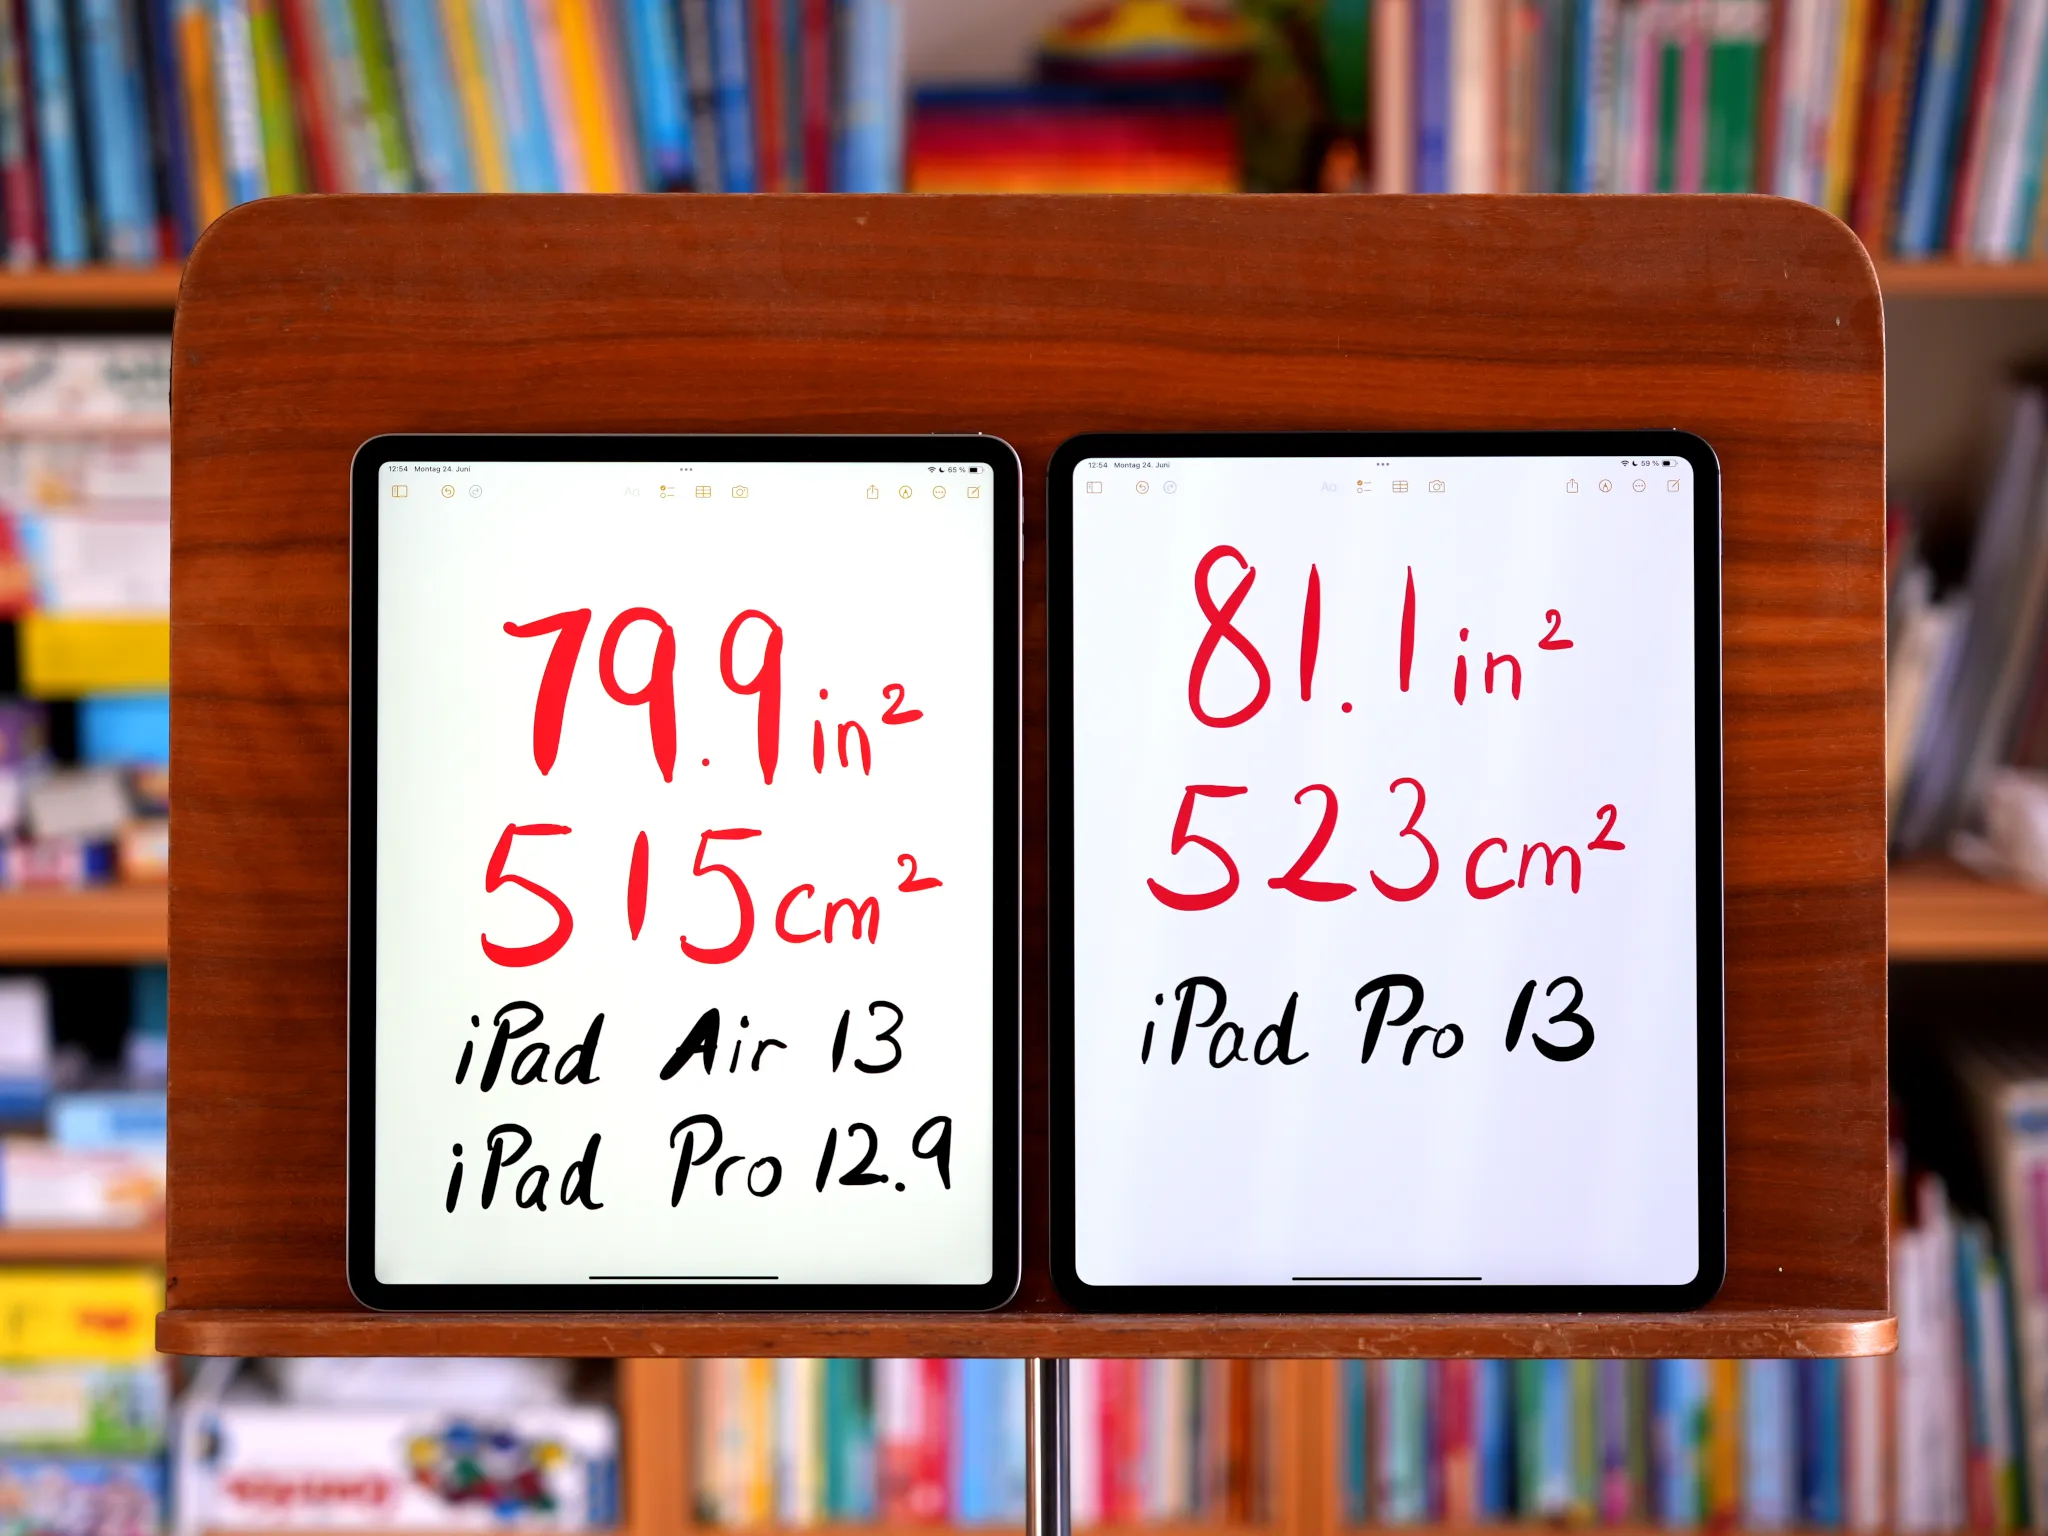 12:54 Montag 24. Juni 65 %
79.9 in²
515 cm²
iPad Air 13
iPad Pro 12.9
12:54 Montag 24. Juni 59 %
81.1 in²
523 cm²
iPad Pro 13